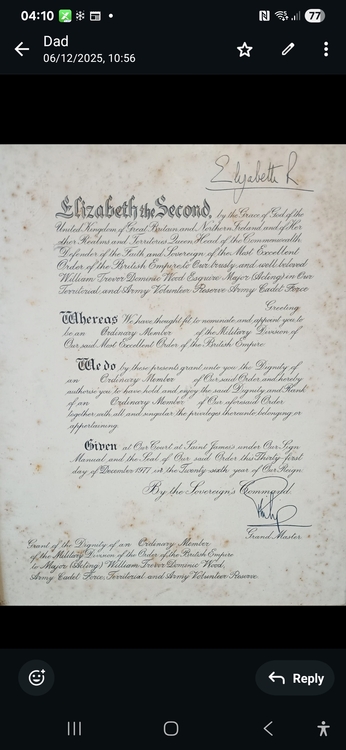 04:10
77
Dad
06/12/2025, 10:56
Elizabeth R
Elizabeth the Second, by the Grace of God of the
United Kingdom of Great Britain and Northern Ireland and of Her
other Realms and Territories Queen, Head of the Commonwealth,
Defender of the Faith and Sovereign of the Most Excellent
Order of the British Empire to Our trusty and well beloved
William Trevor Dominic Wood Esquire Major (Acting) in Our
Territorial and Army Volunteer Reserve Army Cadet Force
Greeting
Whereas We have thought fit to nominate and appoint you to
be an Ordinary Member of the Military Division of
Our said Most Excellent Order of the British Empire
We do by these presents grant unto you the Dignity of
an Ordinary Member of Our said Order and hereby
authorise you to have hold and enjoy the said Dignity and Rank
of an Ordinary Member of Our aforesaid Order
together with all and singular the privileges thereunto belonging or
appertaining.
Given at Our Court at Saint James's under Our Sign
Manual and the Seal of Our said Order this Thirty-first
day of December 1977 in the Twenty-sixth year of Our Reign
By the Sovereign's Command.
Philip
Grand Master
Grant of the Dignity of an Ordinary Member
of the Military Division of the Order of the British Empire
to Major (Acting) William Trevor Dominic Wood,
Army Cadet Force, Territorial and Army Volunteer Reserve
Reply